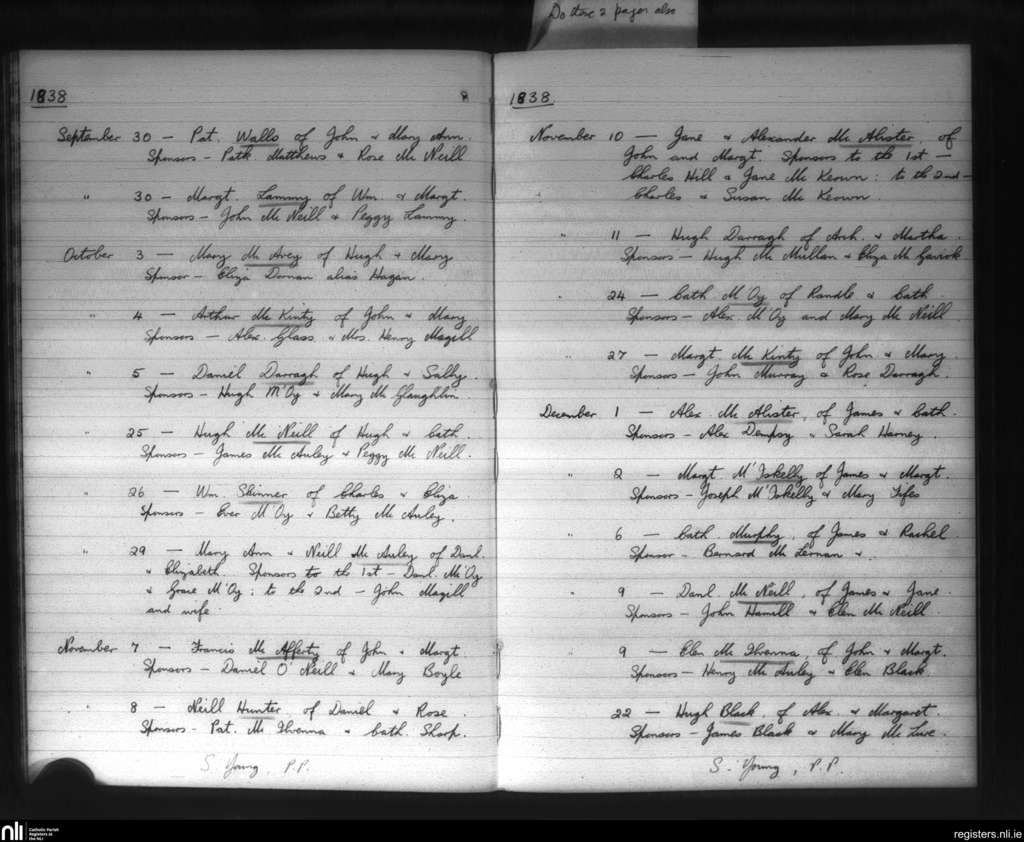 Do these 2 pages also
1838
8
September 30 - Pat. Walls of John & Mary Ann.
Sponsors - Patk. Matthews & Rose Mc Neill
" 30 - Margt. Lammy of Wm. & Margt.
Sponsors - John Mc Neill & Peggy Lammy.
October 3 - Mary Mc Avey of Hugh & Mary
Sponsor - Eliza Dornan alias Hagan.
" 4 - Arthur Mc Kinty of John & Mary
Sponsors - Alex. Glass & Mrs. Henry Magill
" 5 - Daniel Darragh of Hugh & Sally.
Sponsors - Hugh M'Oy & Mary Mc Glaughlin.
" 25 - Hugh Mc Neill of Hugh & Cath.
Sponsors - James Mc Auley & Peggy Mc Neill.
" 26 - Wm. Skinner of Charles & Eliza.
Sponsors - Ever M'Oy & Betty Mc Auley.
" 29 - Mary Ann & Neill Mc Auley of Danl.
& Elizabeth. Sponsors to the 1st - Danl. Mc'Oy
& Grace M'Oy; to the 2nd - John Magill
and wife.
November 7 - Francis Mc Afferty of John & Margt.
Sponsors - Daniel O'Neill & Mary Boyle
" 8 - Neill Hunter of Daniel & Rose.
Sponsors - Pat. Mc Ilvenna & Cath. Sharp.
S. Young, P.P.
1838
November 10 - Jane & Alexander Mc Alister, of
John and Margt. Sponsors to the 1st -
Charles Hill & Jane Mc Keown: to the 2nd -
Charles & Susan Mc Keown.
" 11 - Hugh Darragh of Arch. & Martha.
Sponsors - Hugh Mc Mullan & Eliza Mc Gavick
" 24 - Cath. M'Oy of Randle & Cath.
Sponsors - Alex. M'Oy and Mary Mc Neill
" 27 - Margt. Mc Kinty of John & Mary.
Sponsors - John Murray & Rose Darragh.
December 1 - Alex. Mc Alister, of James & Cath.
Sponsors - Alex Dempsy & Sarah Harvey.
" 2 - Margt. M'Iskelly of James & Margt.
Sponsors - Joseph M'Iskelly & Mary Fifes
" 6 - Cath. Murphy, of James & Rachel
Sponsor - Bernard Mc Lernan &.
" 9 - Danl. Mc Neill, of James & Jane.
Sponsors - John Hamill & Elen Mc Neill.
" 9 - Elen Mc Ilvenna, of John & Margt.
Sponsors - Henry Mc Auley & Elen Black.
22 - Hugh Black, of Alex. & Margaret.
Sponsors - James Black & Mary Mc Live.
S. Young, P.P.
nli Catholic Parish
Registers at
the NLI
registers.nli.ie